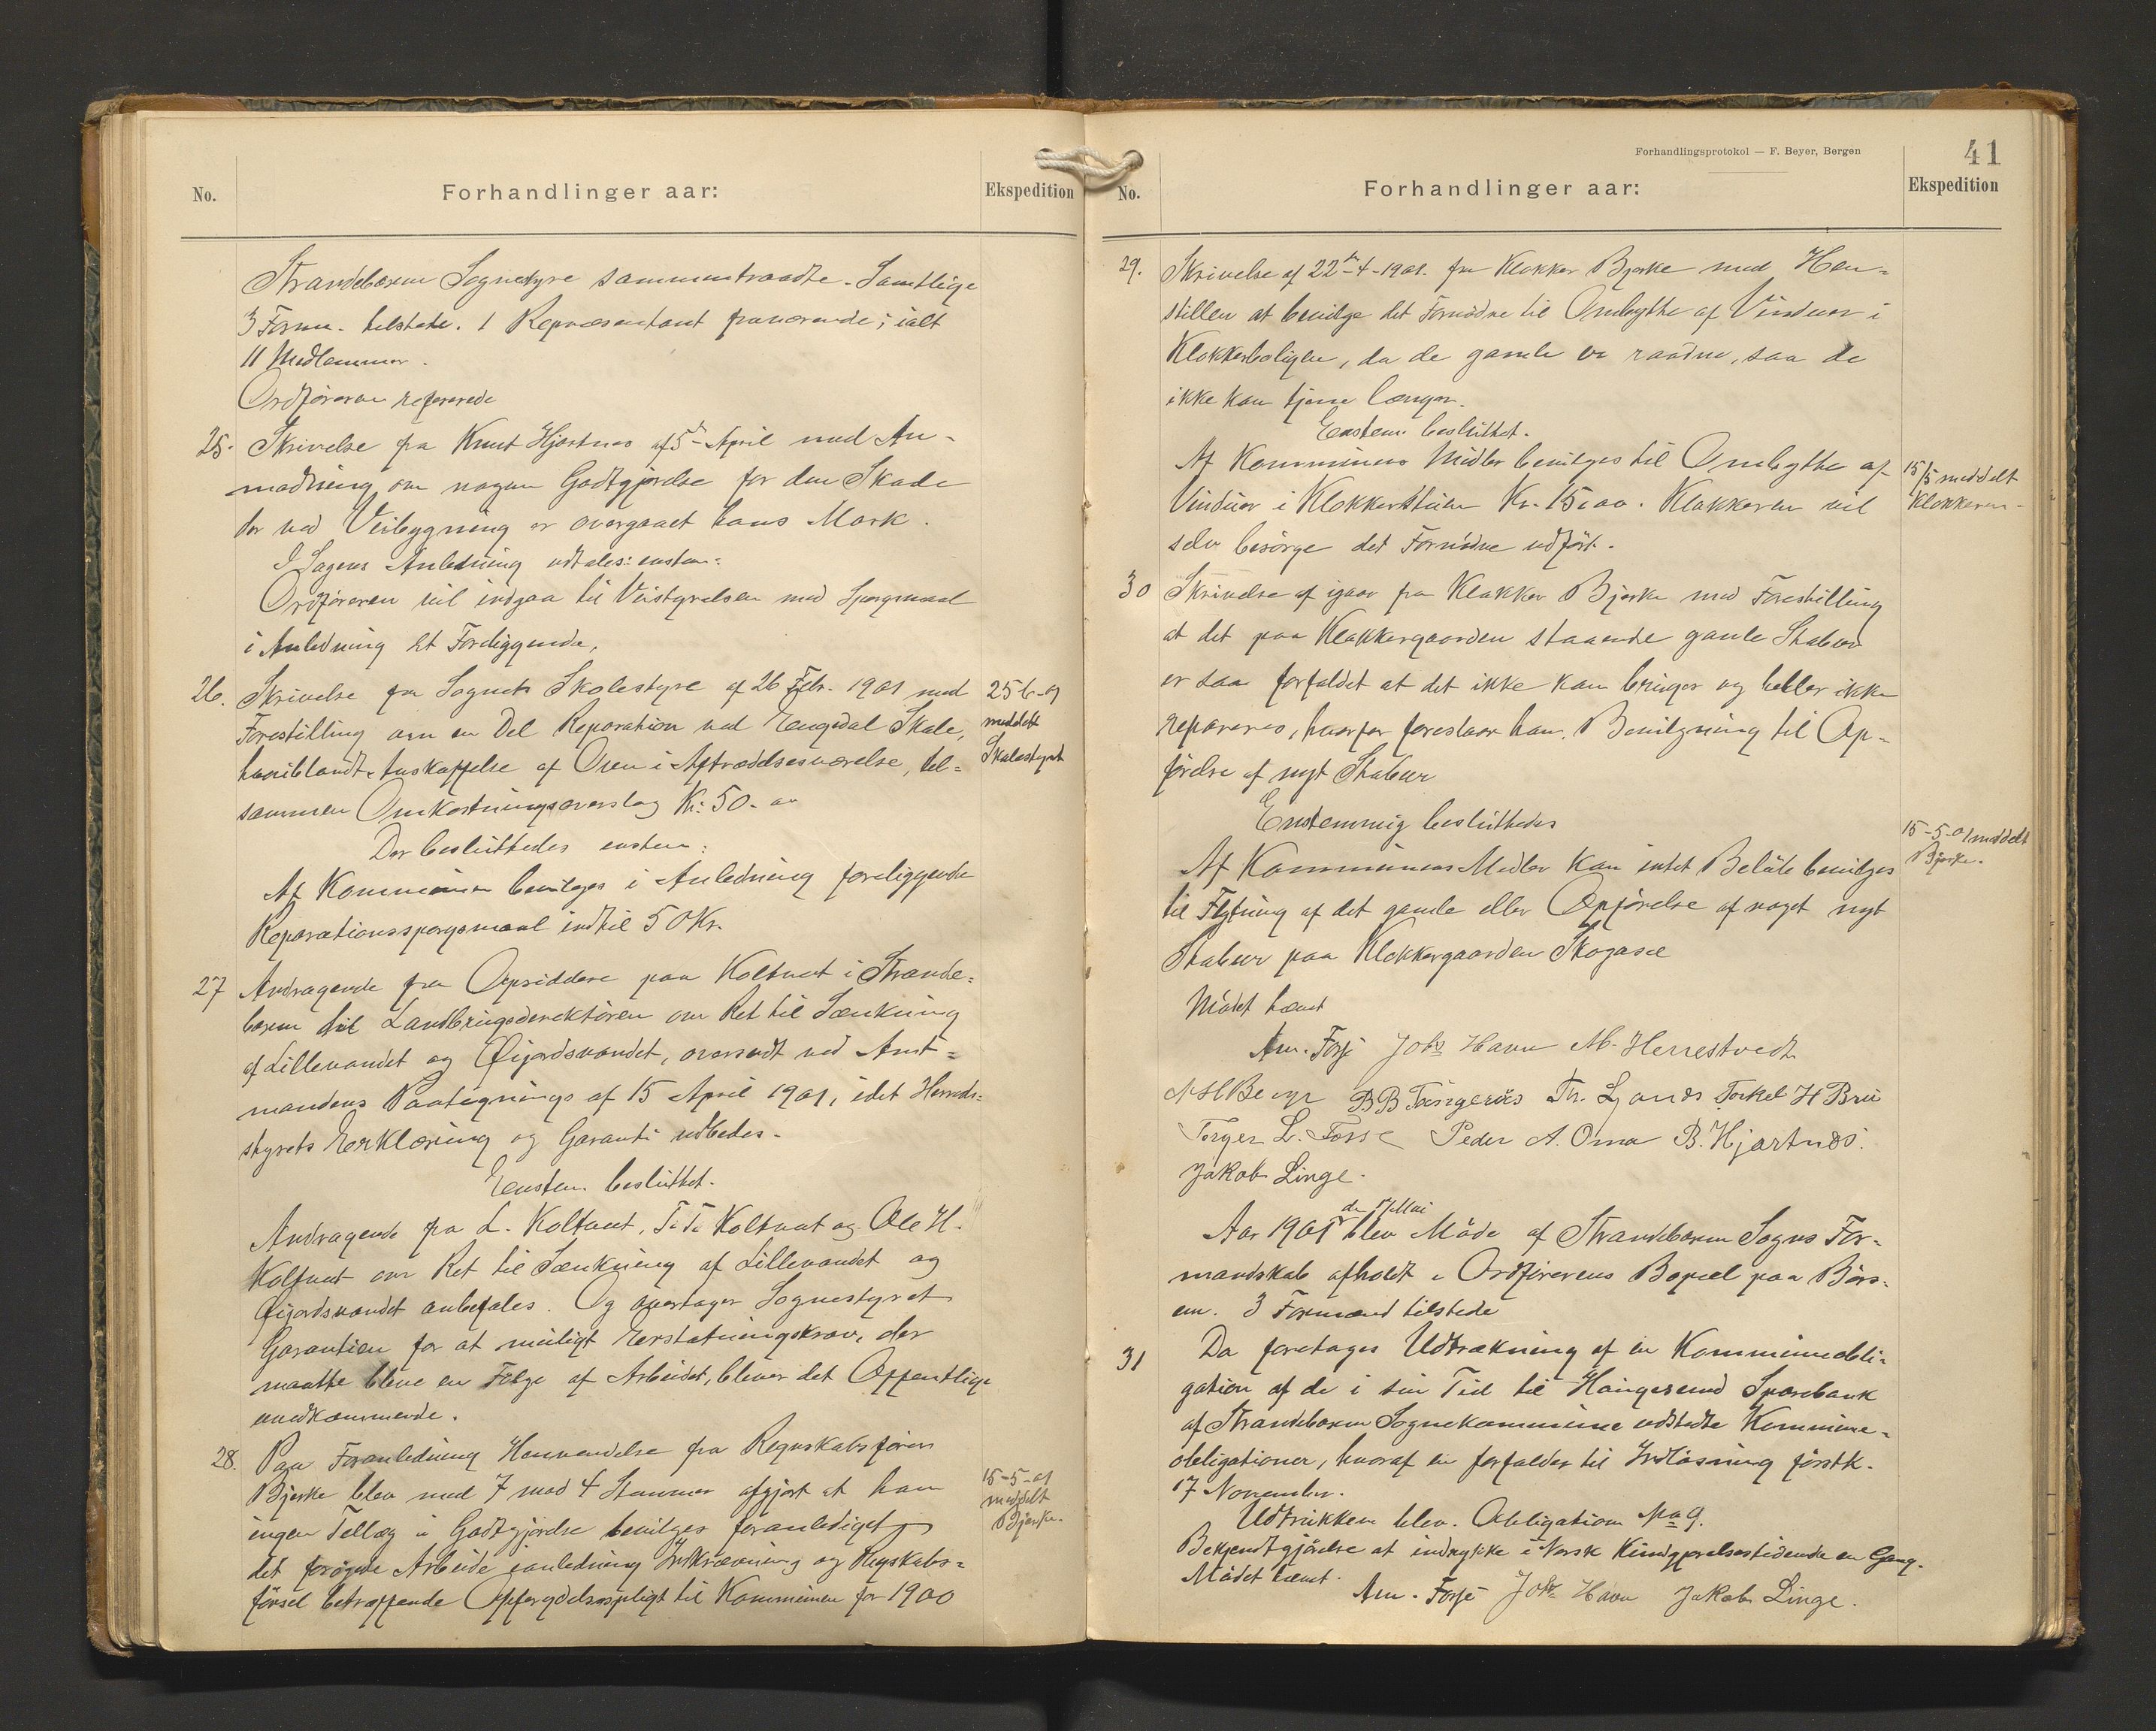 No.
Forhandlinger aar:
Ekspedition
Strandebarm Sognestyre sammentraadte. Samtlige
3 Form. tilstede. 1 Repræsentant fraværende; ialt
11 Medlemmer.
Ordføreren refererede
25. Skrivelse fra Knut Hjartnes af 5te April med An-
modning om nogen Godtgjørelse for den Skade
der ved Veibygning er overgaaet hans Mark.
I Sagens Anledning udtales: enstem:
Ordføreren vil indgaa til Veistyrelsen med Spørgsmaal
i Anledning det Foreliggende.
26. Skrivelse fra Sognets Skolestyre af 26 Febr. 1901 med
Forestilling om en Del Reparation ved Tengsdal Skole,
hvoriblandt Anskaffelse af Ovn i Aftrædelsesværelse, til=
sammen Omkostningsoverslag Kr. 50.00
25 6-01
meddelt
Skolestyret
Der besluttedes enstem:
Af Kommunen bevilges i Anledning foreliggende
Reparationsspørgsmaal indtil 50 Kr.
27 Andragende fra Opsiddere paa Koltveit i Strande=
barm til Landbrugsdirektøren om Ret til Sænkning
af Lillevandet og Øijordsvandet, oversendt ved Amt=
mandens Paategnings af 15 April 1901, idet Herreds=
styrets Erklæring og Garanti udbedes.
Enstem. besluttet.
Andragende fra L. Koltveit, T. T. Koltveit og Ole H.
Koltveit om Ret til Sænkning af Lillevandet og
Øijordsvandet anbefales. Og overtager Sognestyret
Garantien for at muligt Erstatningskrav, der
maatte blive en Følge af Arbeidet, bliver det Offentlige
uvedkommende.
28. Paa Foranledning Henvendelse fra Regnskabsfører
Bjerke blev med 7 mod 4 Stemmer afgjort at ham
ingen Tillæg i Godtgjørelse bevilges foranlediget
det forøgede Arbeide ianledning Indkrævning og Regnskabs=
førsel betræffende Opfergdelsespligt til Kommunen for 1900
15-5-01
meddelt
Bjerke.
Forhandlingsprotokol — F. Beyer, Bergen
41
No.
Forhandlinger aar:
Ekspedition
29. Skrivelse af 22de-4-1901. fra Klokker Bjerke med Hen=
stillen at bevilge det Fornødne til Ombytte af Vinduer i
Klokkerboligen, da de gamle er raadne, saa de
ikke kan tjene længer.
Enstem. besluttet.
Af Kommunens Midler bevilges til Ombytte af
Vinduer i Klokkerstuen Kr. 15,00. Klokkeren vil
selv besørge det Fornødne udført.
15/5 meddelt
Klokkeren.
30 Skrivelse af igaar fra Klokker Bjerke med Forestilling
at det paa Klokkergaarden staaende gamle Stabur
er saa forfaldet at det ikke kan bruges og heller ikke
repareres, hvorfor foreslaar han, Bevilgning til Op-
førelse af nyt Stabur
Enstemmig besluttedes
Af Kommunens Midler kan intet Beløb bevilges
til Flytning af det gamle eller Opførelse af noget nyt
Stabur paa Klokkergaarden Skogasel
15-5-01 meddelt
Bjerke.
Mødet hævet
Am. Fosse Johs Havn M. Herrestvedt
B B Tangerås Th. Ljones Torkel H Bru
Torger L. Fosse Peder A. Oma B. Hjartnes.
Jakob Linge.
Aar 1901 den 7 Mai blev Møde af Strandebarm Sogns For-
mandskab afholdt i Ordførerens Bopæl paa Børs-
em. 3 Formænd tilstede
31 Da foretages Udtrækning af en Kommuneobli-
gation af de i sin Tid til Haugesund Sparebank
af Strandebarm Sognekommune udstedte Kommune-
obligationer, hvoraf en forfalder til Indløsning førstk.
17 November.
Udtrukken blev. Obligation No 9.
Bekjendtgjørelse at indrykke i Norsk Kundgjørelsestidende en Gang.
Mødet hævet.
Am. Fosse Johs Havn Jakob Linge.